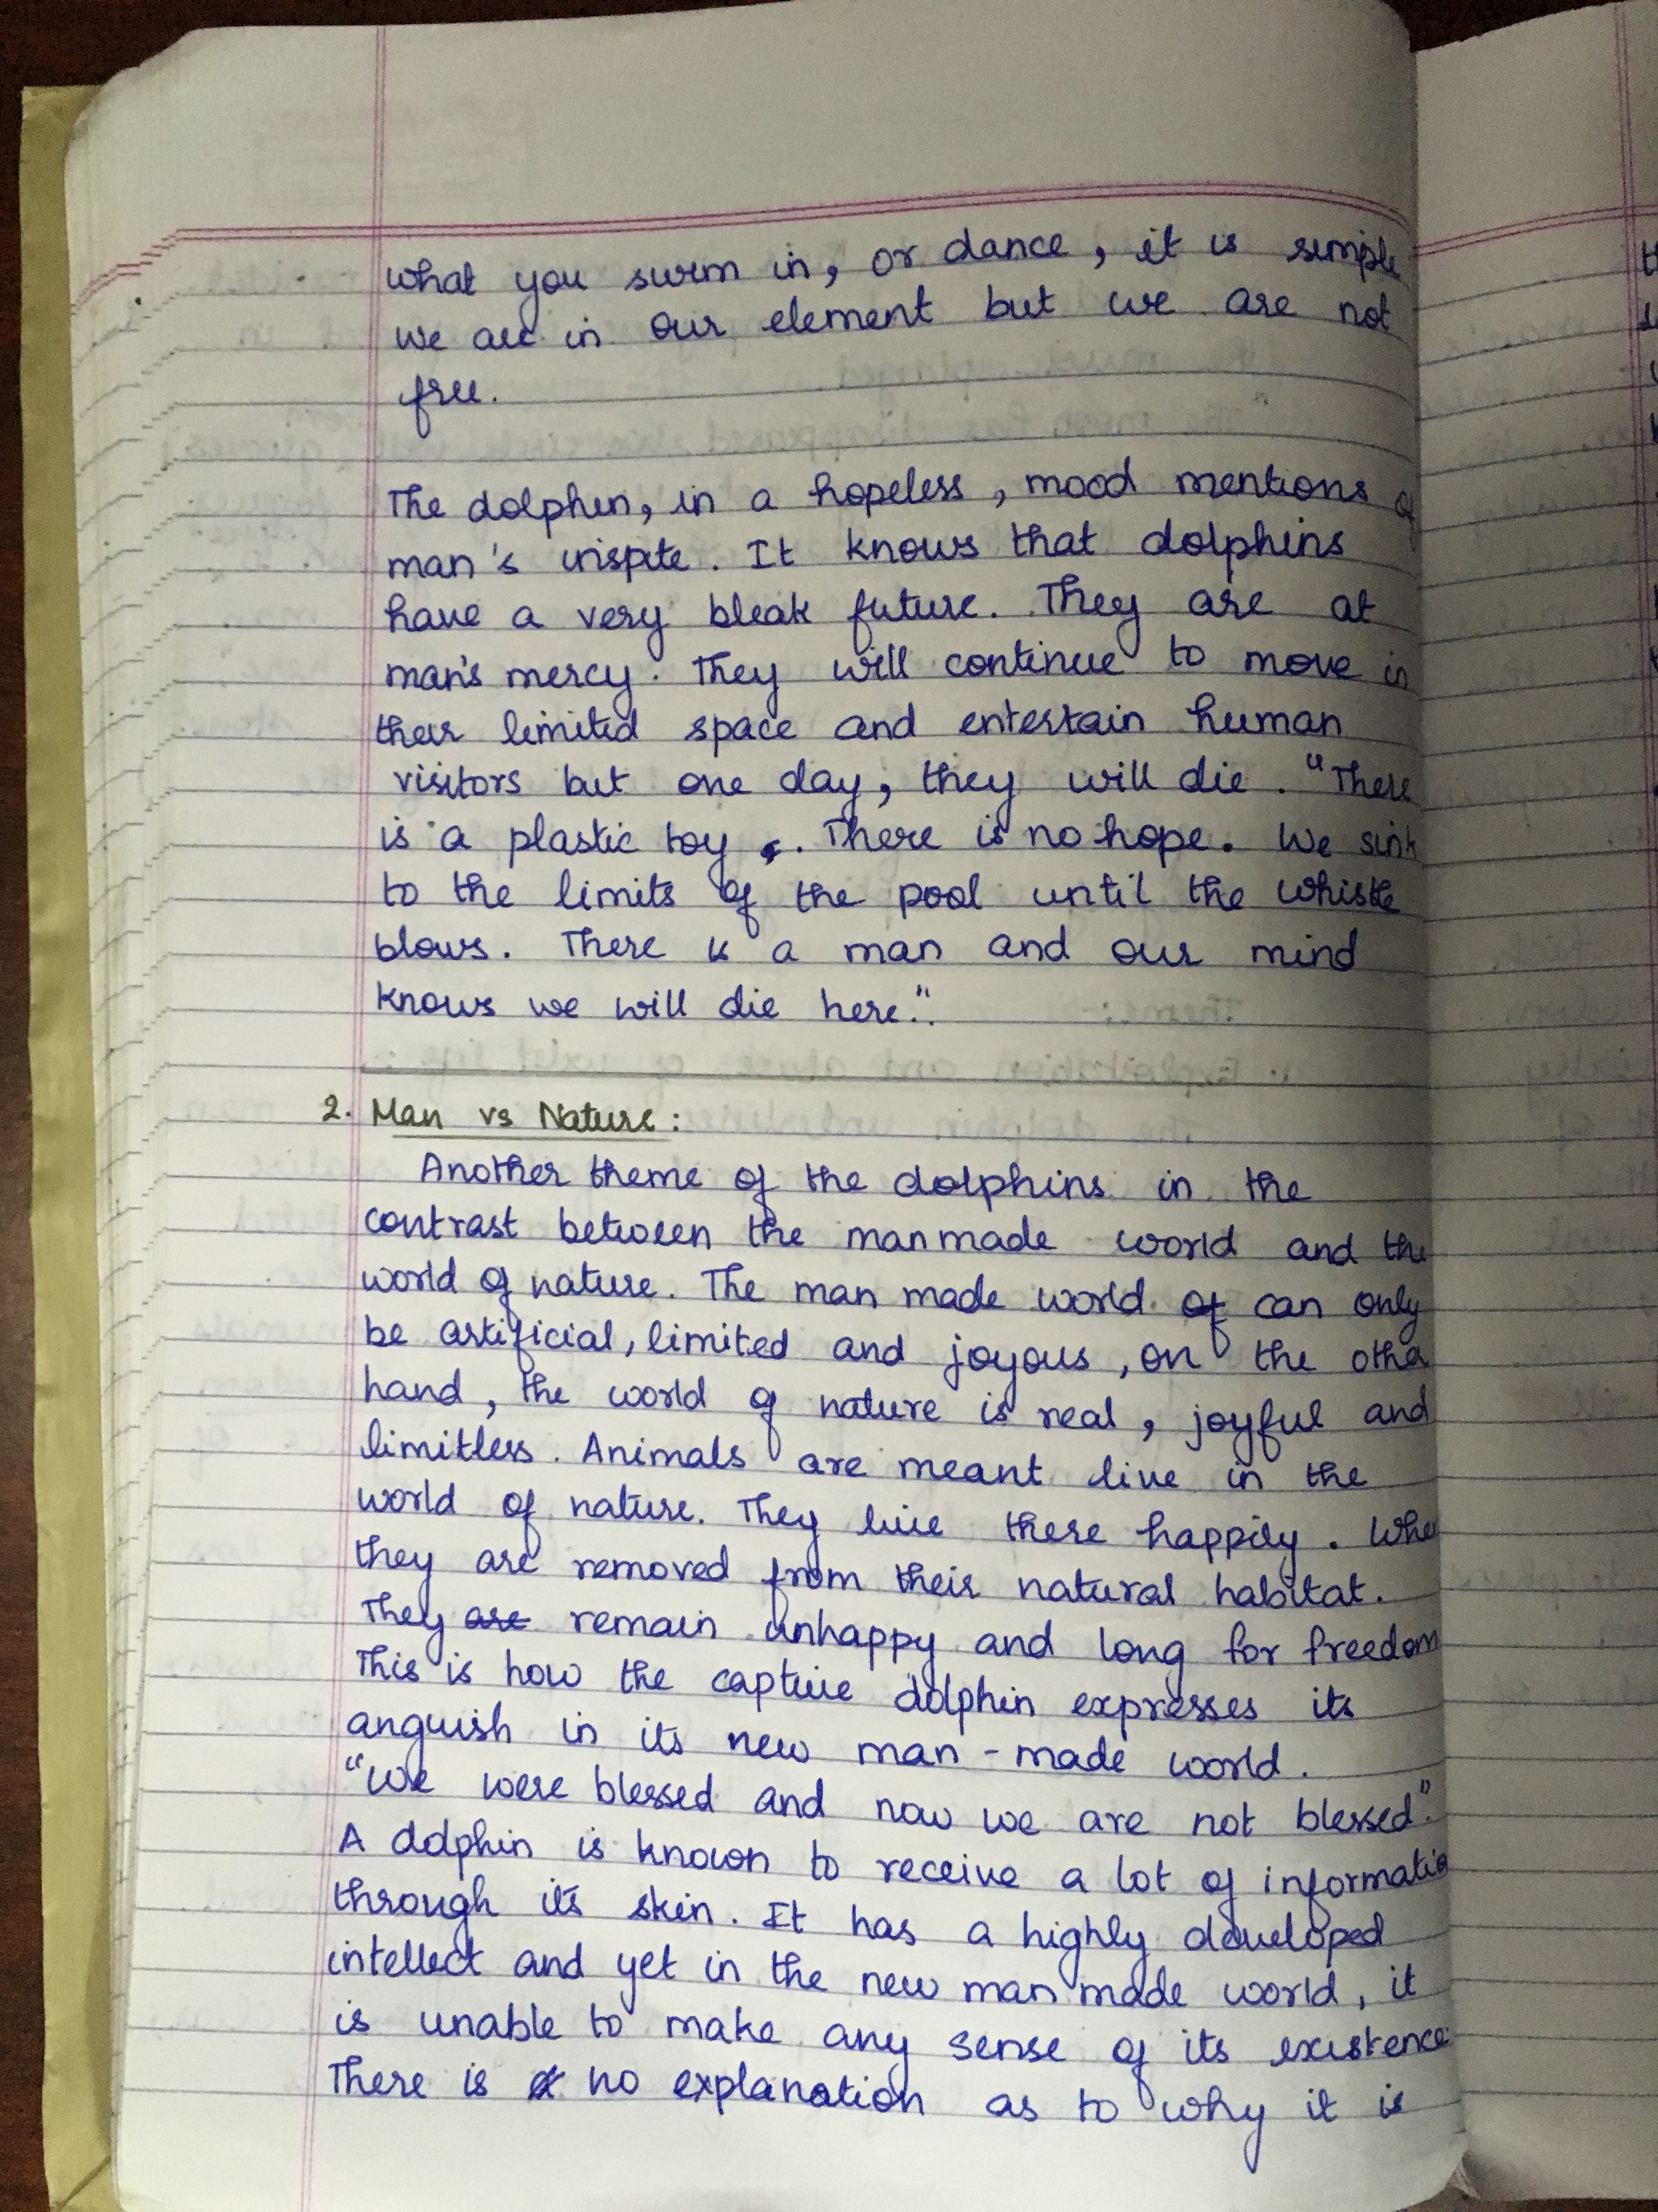 what you swim in, or dance, it is simple
we are in our element but we are not
free.
The dolphin, in a hopeless, mood mentions of
man's inspite. It knows that dolphins
have a very bleak future. They are at
man's mercy. They will continue to move in
their limited space and entertain human
visitors but one day, they will die. "There
is a plastic toy. There is no hope. We sink
to the limits of the pool until the whistle
blows. There is a man and our mind
knows we will die here".
2. Man vs Nature:
Another theme of the dolphins in the
contrast between the manmade world and the
world of nature. The man made world of can only
be artificial, limited and joyous, on the other
hand, the world of nature is real, joyful and
limitless. Animals are meant live in the
world of nature. They live there happily. Whe
they are removed from their natural habitat.
They are remain unhappy and long for freedom
This is how the captive dolphin expresses its
anguish in its new man-made world.
"We were blessed and now we are not blessed".
A dolphin is known to receive a lot of informatio
through its skin. It has a highly developed
intellect and yet in the new man made world, it
is unable to make any sense of its existence.
There is no explanation as to why it is